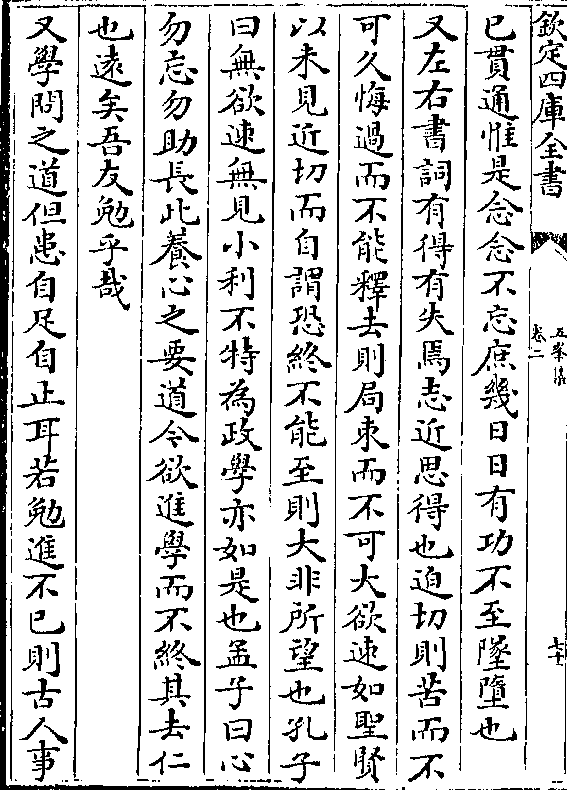 欽定四庫全書
五峯集
卷二
七十
已貫通惟是念念不忘庶幾日日有功不至墜墮也
又左右書詞有得有失焉志近思得也迫切則苦而不
可久悔過而不能釋去則局束而不可大欲速如聖賢
以未見近切而自謂恐終不能至則大非所望也孔子
曰無欲速無見小利不特為政學亦如是也孟子曰心
勿忘勿助長此養心之要道今欲進學而不終其去仁
也遠矣吾友勉乎哉
又學問之道但患自足自止耳若勉進不已則古人事